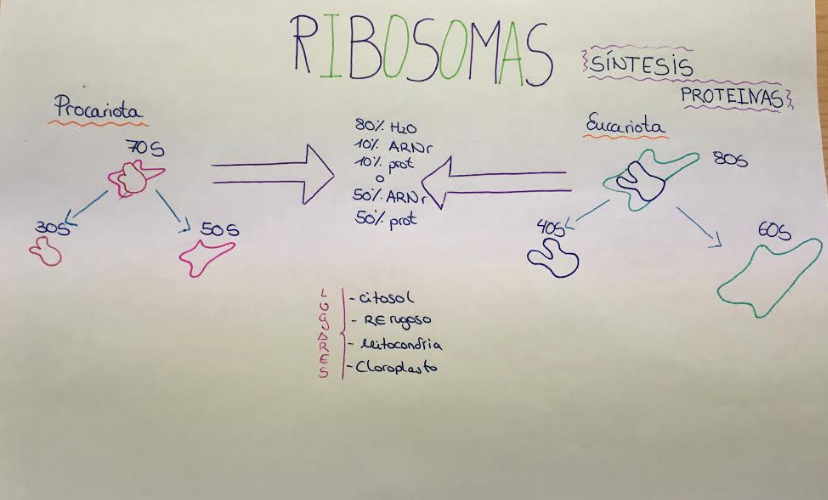 RIBOSOMAS
SÍNTESIS
PROTEINAS
Procariota
70S
30S
50S
80% H2O
10% ARNr
10% prot
o
50% ARNr
50% prot
Eucariota
80S
40S
60S
LUGARES
- citosol
- RE rugoso
- Mitocondria
- Cloroplasto